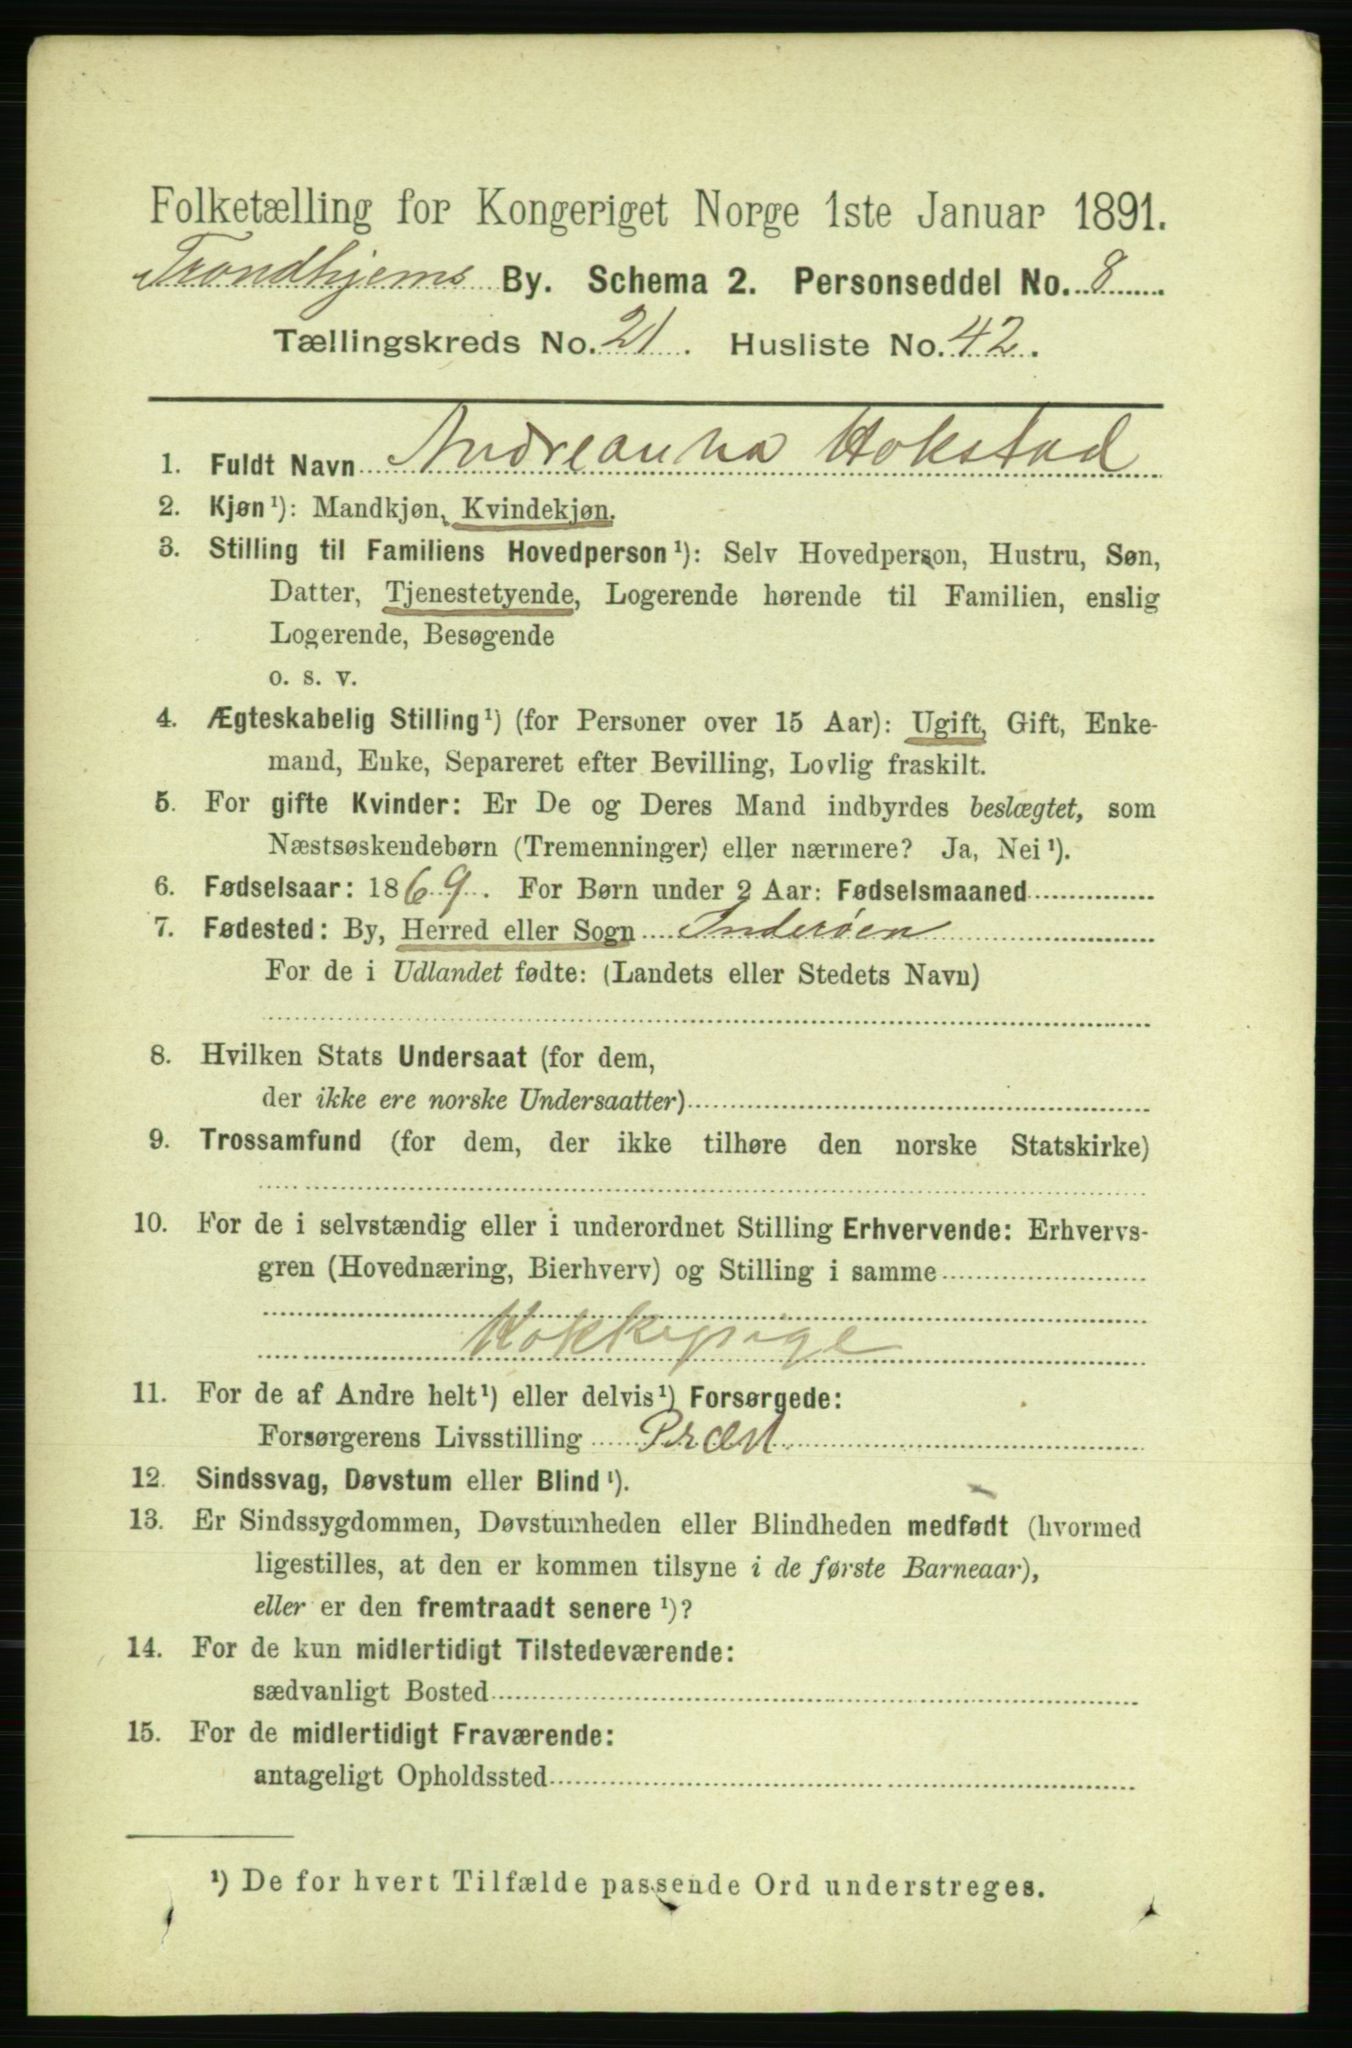 Folketælling for Kongeriget Norge 1ste Januar 1891.
Trondhjems By. Schema 2. Personseddel No. 8
Tællingskreds No. 21. Husliste No. 42.
1. Fuldt Navn Andreanna Hokstad
2. Kjøn¹): Mandkjøn, Kvindekjøn.
3. Stilling til Familiens Hovedperson¹): Selv Hovedperson, Hustru, Søn,
Datter, Tjenestetyende, Logerende hørende til Familien, enslig
Logerende, Besøgende
o. s. v.
4. Ægteskabelig Stilling¹) (for Personer over 15 Aar): Ugift, Gift, Enke-
mand, Enke, Separeret efter Bevilling, Lovlig fraskilt.
5. For gifte Kvinder: Er De og Deres Mand indbyrdes beslægtet, som
Næstsøskendebørn (Tremenninger) eller nærmere? Ja, Nei¹).
6. Fødselsaar: 1869. For Børn under 2 Aar: Fødselsmaaned
7. Fødested: By, Herred eller Sogn Inderøen
For de i Udlandet fødte: (Landets eller Stedets Navn)
8. Hvilken Stats Undersaat (for dem,
der ikke ere norske Undersaatter)
9. Trossamfund (for dem, der ikke tilhøre den norske Statskirke)
10. For de i selvstændig eller i underordnet Stilling Erhvervende: Erhvervs-
gren (Hovednæring, Bierhverv) og Stilling i samme
Kokkepige
11. For de af Andre helt¹) eller delvis¹) Forsørgede:
Forsørgerens Livsstilling Præst
12. Sindssvag, Døvstum eller Blind¹).
13. Er Sindssygdommen, Døvstumheden eller Blindheden medfødt (hvormed
ligestilles, at den er kommen tilsyne i de første Barneaar),
eller er den fremtraadt senere¹)?
14. For de kun midlertidigt Tilstedeværende:
sædvanligt Bosted
15. For de midlertidigt Fraværende:
antageligt Opholdssted
¹) De for hvert Tilfælde passende Ord understreges.